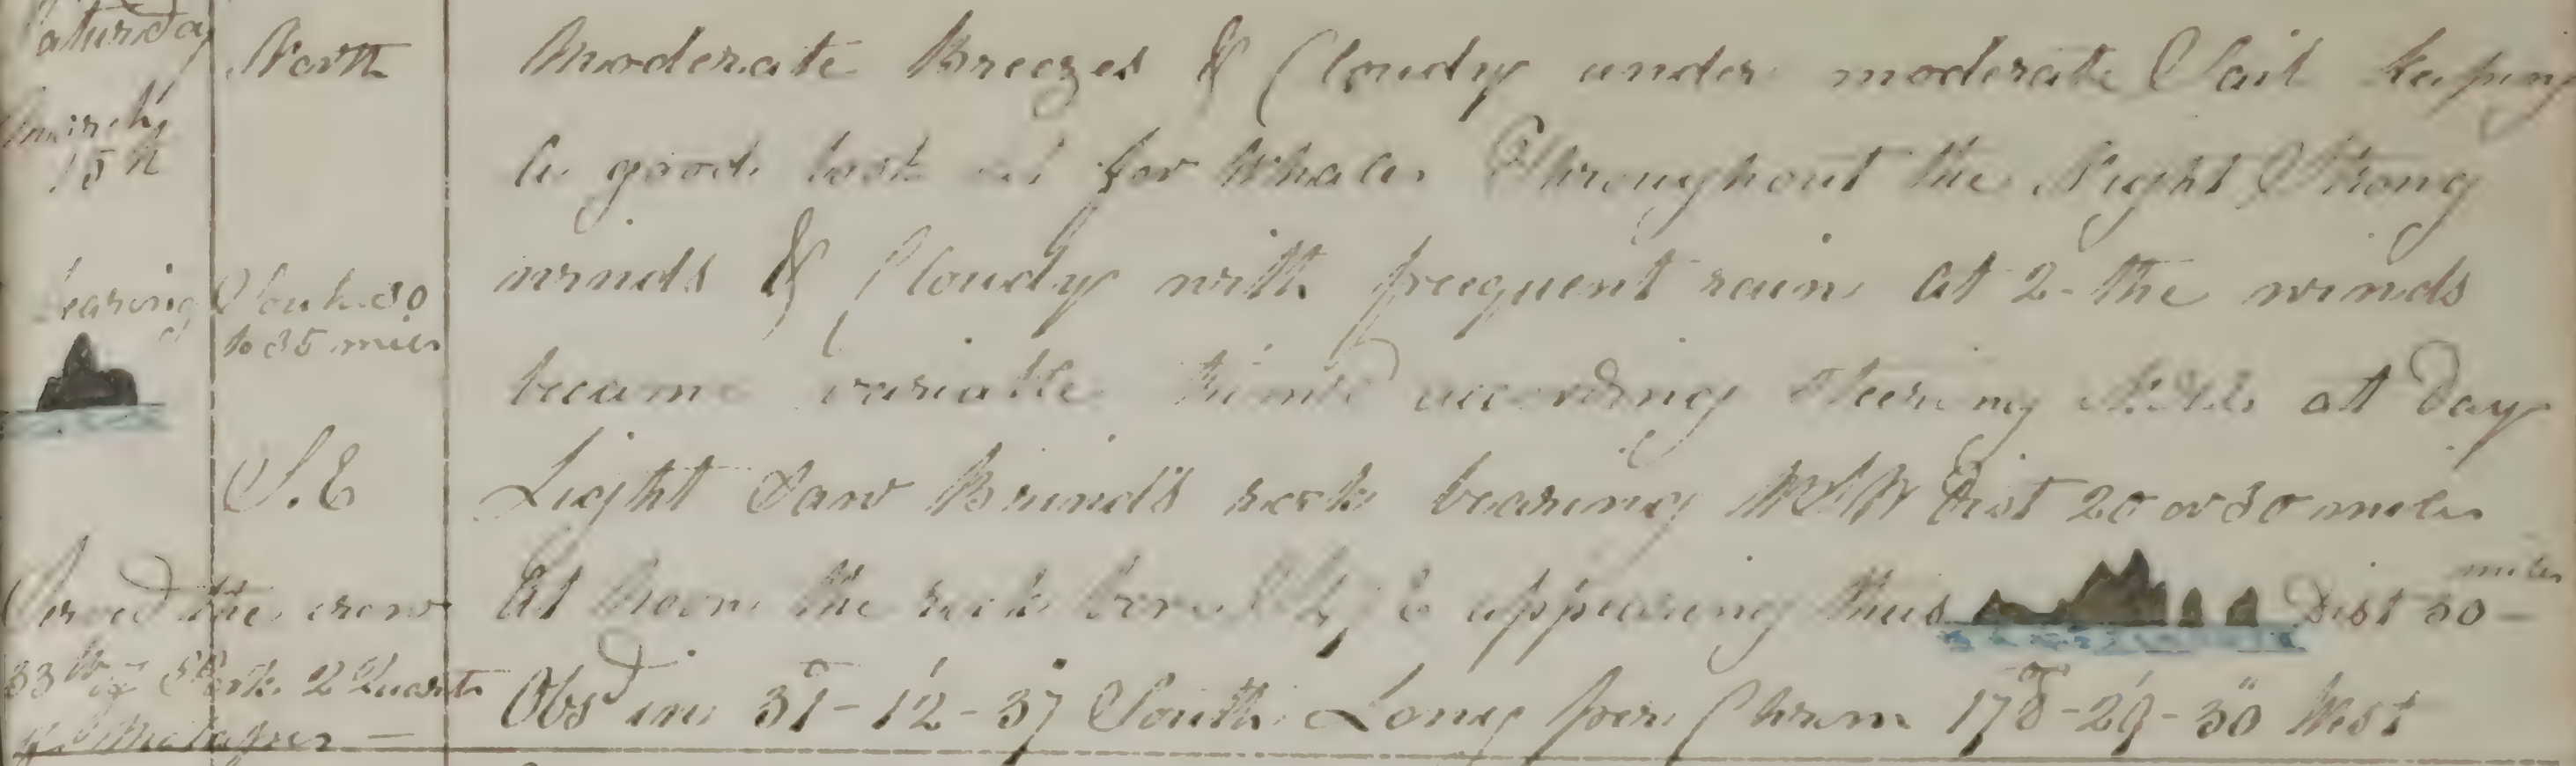 Saturday
March
15th
North
bearing South 30
to 35 miles
S.E
Served the crew
33 lb of Pork 2 Quarts
of Molasses —
Moderate Breezes & Cloudy under moderate Sail keeping
a good look out for Whales Throughout the Night Strong
winds & Cloudy with frequent rain At 2 - the winds
became variable trim'd according Steering at Day
Light Saw Brind's rock bearing WSW Dist 20 or 30 miles
At Noon the rock bore appearing thus Dist 30 - miles
Obsd in 31° - 12' - 37 South Long per Chrom 178° - 29' - 30" West